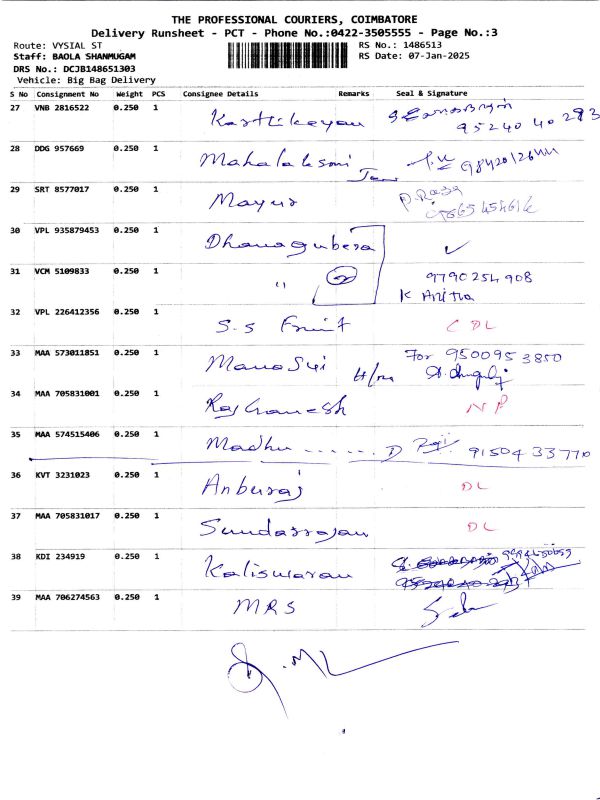 THE PROFESSIONAL COURIERS, COIMBATORE
Delivery Runsheet - PCT - Phone No.:0422-3505555 - Page No.:3
Route: VYSIAL ST
RS No.: 1486513
Staff: BAOLA SHANMUGAM
RS Date: 07-Jan-2025
DRS No.: DCJB148651303
Vehicle: Big Bag Delivery
S No Consignment No Weight PCS Consignee Details Remarks Seal & Signature
27 VNB 2816522 0.250 1 Karthikeyan
95240 40 293
28 DDG 957669 0.250 1 Mahalaksmi
29 SRT 8577017 0.250 1 Mayur P. Raja
30 VPL 935879453 0.250 1 Dhanagubera ✓
31 VCM 5109833 0.250 1 " 2 9790254908
K Anitha
32 VPL 226412356 0.250 1 S.S Fruit C DL
33 MAA 573011851 0.250 1 ManoSri H/m For 9500953850
34 MAA 705831001 0.250 1 Raj Ganesh NP
35 MAA 574515406 0.250 1 Madhu ...... D 91504 33770
36 KVT 3231023 0.250 1 Anburaj DL
37 MAA 705831017 0.250 1 Sundarrajan DL
38 KDI 234919 0.250 1 Kaliswaran
39 MAA 706274563 0.250 1 MRS